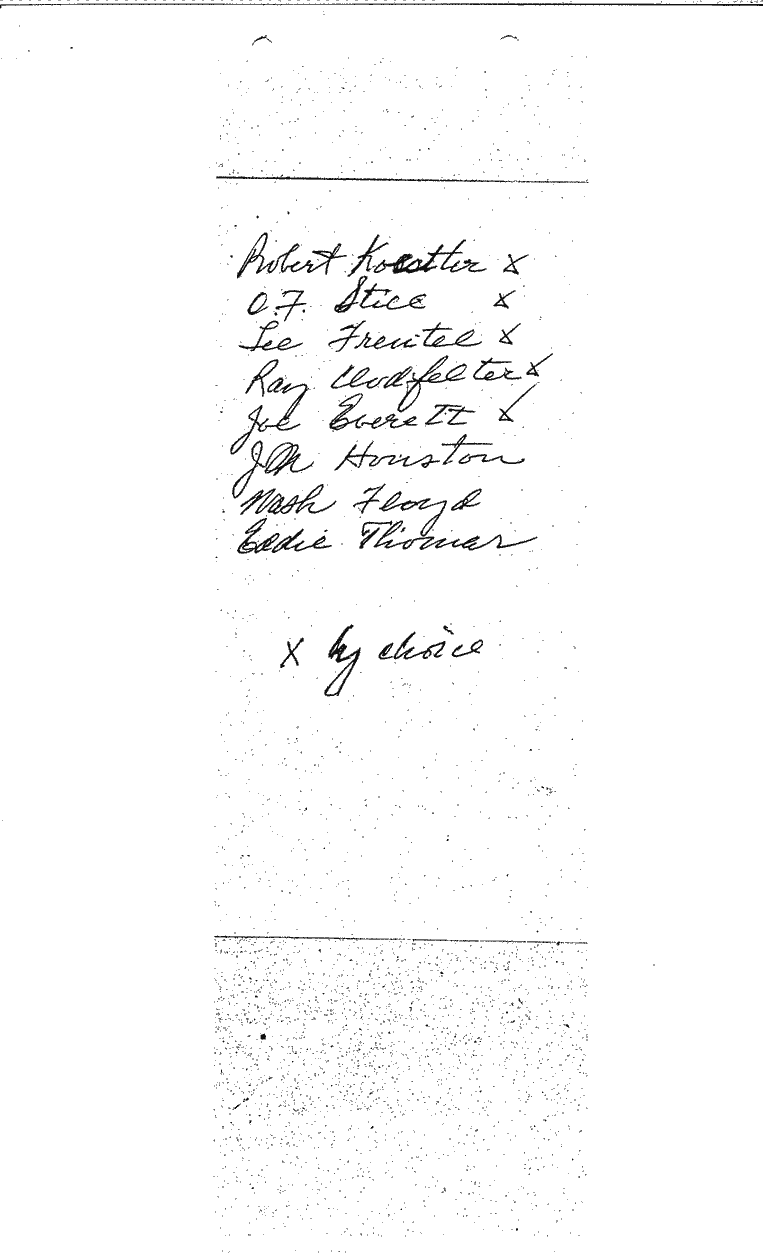 Robert Koestter x
O.F. Stice x
Lee Freutel x
Ray Clodfelter x
Joe Everett x
J M Houston
Nash Floyd
Eddie Thomas
x by choice